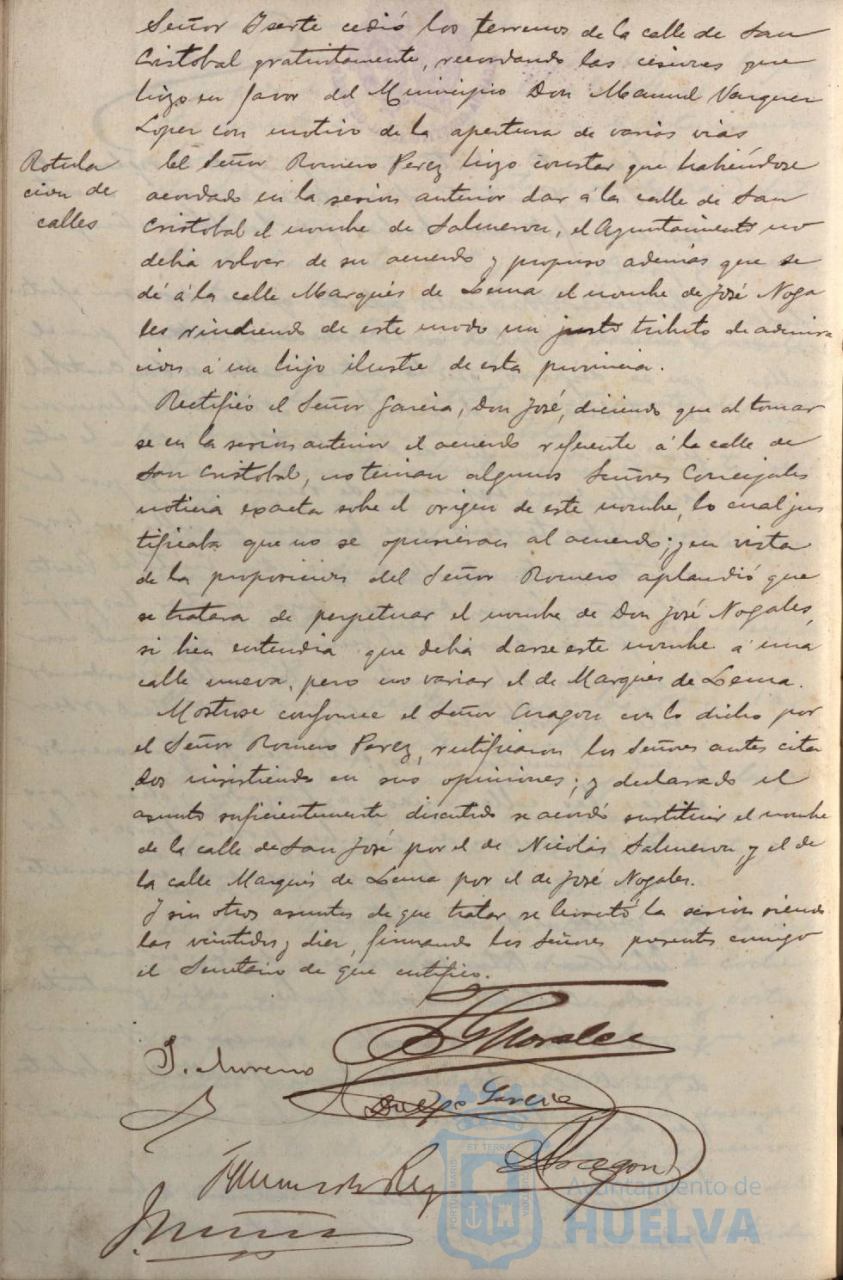 Señor Isarte cedió los terrenos de la calle de San
Cristobal gratuitamente, recordando las cesiones que
hizo en favor del Municipio Don Manuel Vazquez
Lopez con motivo de la apertura de varias vias
Rotula
cion de
calles
El Señor Romero Perez hizo constar que habiéndose
acordado en la sesion anterior dar á la calle de San
Cristobal el nombre de Salmeron, el Ayuntamiento no
debia volver de su acuerdo y propuso además que se
dé á la calle Marqués de Lema el nombre de José Noga
les rindiendo de este modo un justo tributo de admira
cion á un hijo ilustre de esta provincia.
Rectificó el Señor Garcia, Don José, diciendo que al tomar
se en la sesion anterior el acuerdo referente á la calle de
San Cristobal, no tenian algunos Señores Concejales
noticia exacta sobre el origen de este nombre, lo cual jus
tificaba que no se opusieran al acuerdo; y en vista
de la proposicion del Señor Romero aplaudió que
se tratara de perpetuar el nombre de Don José Nogales,
si bien entendia que debia darse este nombre á una
calle nueva, pero no variar el de Marqués de Lema.
Mostrose conforme el Señor Aragon con lo dicho por
el Señor Romero Perez, rectificaron los Señores antes cita
dos insistiendo en sus opiniones; y declarado el
asunto suficientemente discutido se acordó sustituir el nombre
de la calle de San José por el de Nicolás Salmeron, y el de
la calle Marqués de Lema por el de José Nogales.
Y sin otros asuntos de que tratar se levantó la sesion siendo
las veintidos y diez, firmando los Señores presentes conmigo
el Secretario de que certifico.
Morales
J. Moreno
Garcia
Aragon
Ayuntamiento de
HUELVA